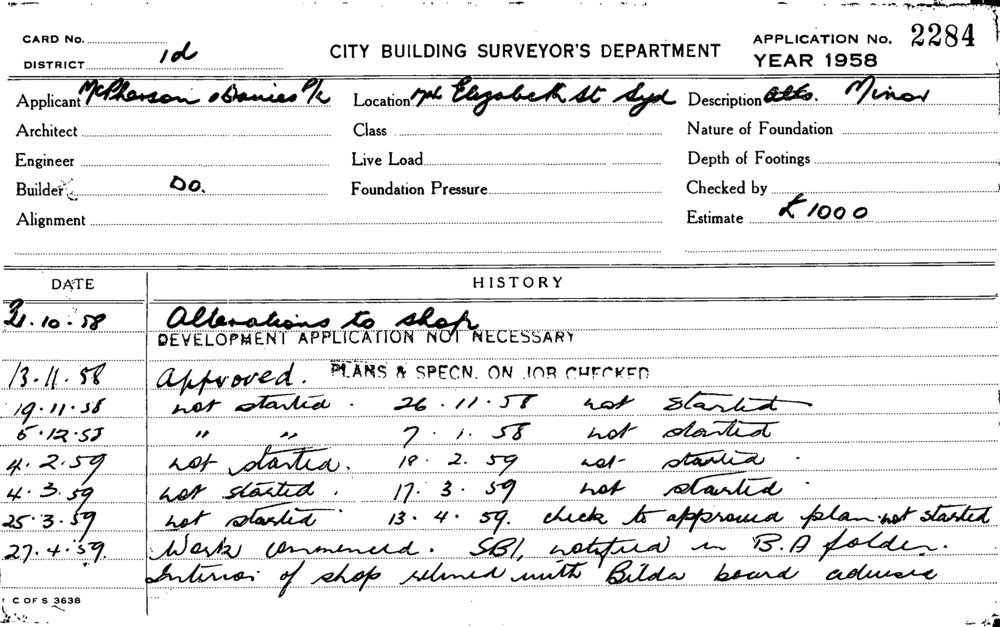 CARD No. CITY BUILDING SURVEYOR'S DEPARTMENT APPLICATION No. 2284
DISTRICT 1d YEAR 1958
Applicant McPherson & Davies P/L Location Elizabeth St Syd Description Alts. Minor
Architect Class Nature of Foundation
Engineer Live Load Depth of Footings
Builder Do. Foundation Pressure Checked by
Alignment Estimate £1000
DATE HISTORY
21.10.58 Alterations to shop
DEVELOPMENT APPLICATION NOT NECESSARY
13.11.58 Approved. PLANS & SPECN. ON JOB CHECKED
19.11.58 not started. 26.11.58 not started
5.12.58 " " 7.1.58 not started
4.2.59 not started. 18.2.59 not started.
4.3.59 not started. 17.3.59 not started.
25.3.59 not started 13.4.59. check to approved plan not started
27.4.59. Work commenced. SBI, notified in B.A folder.
Interior of shop relined with Bilda board advise
C OF S 3638